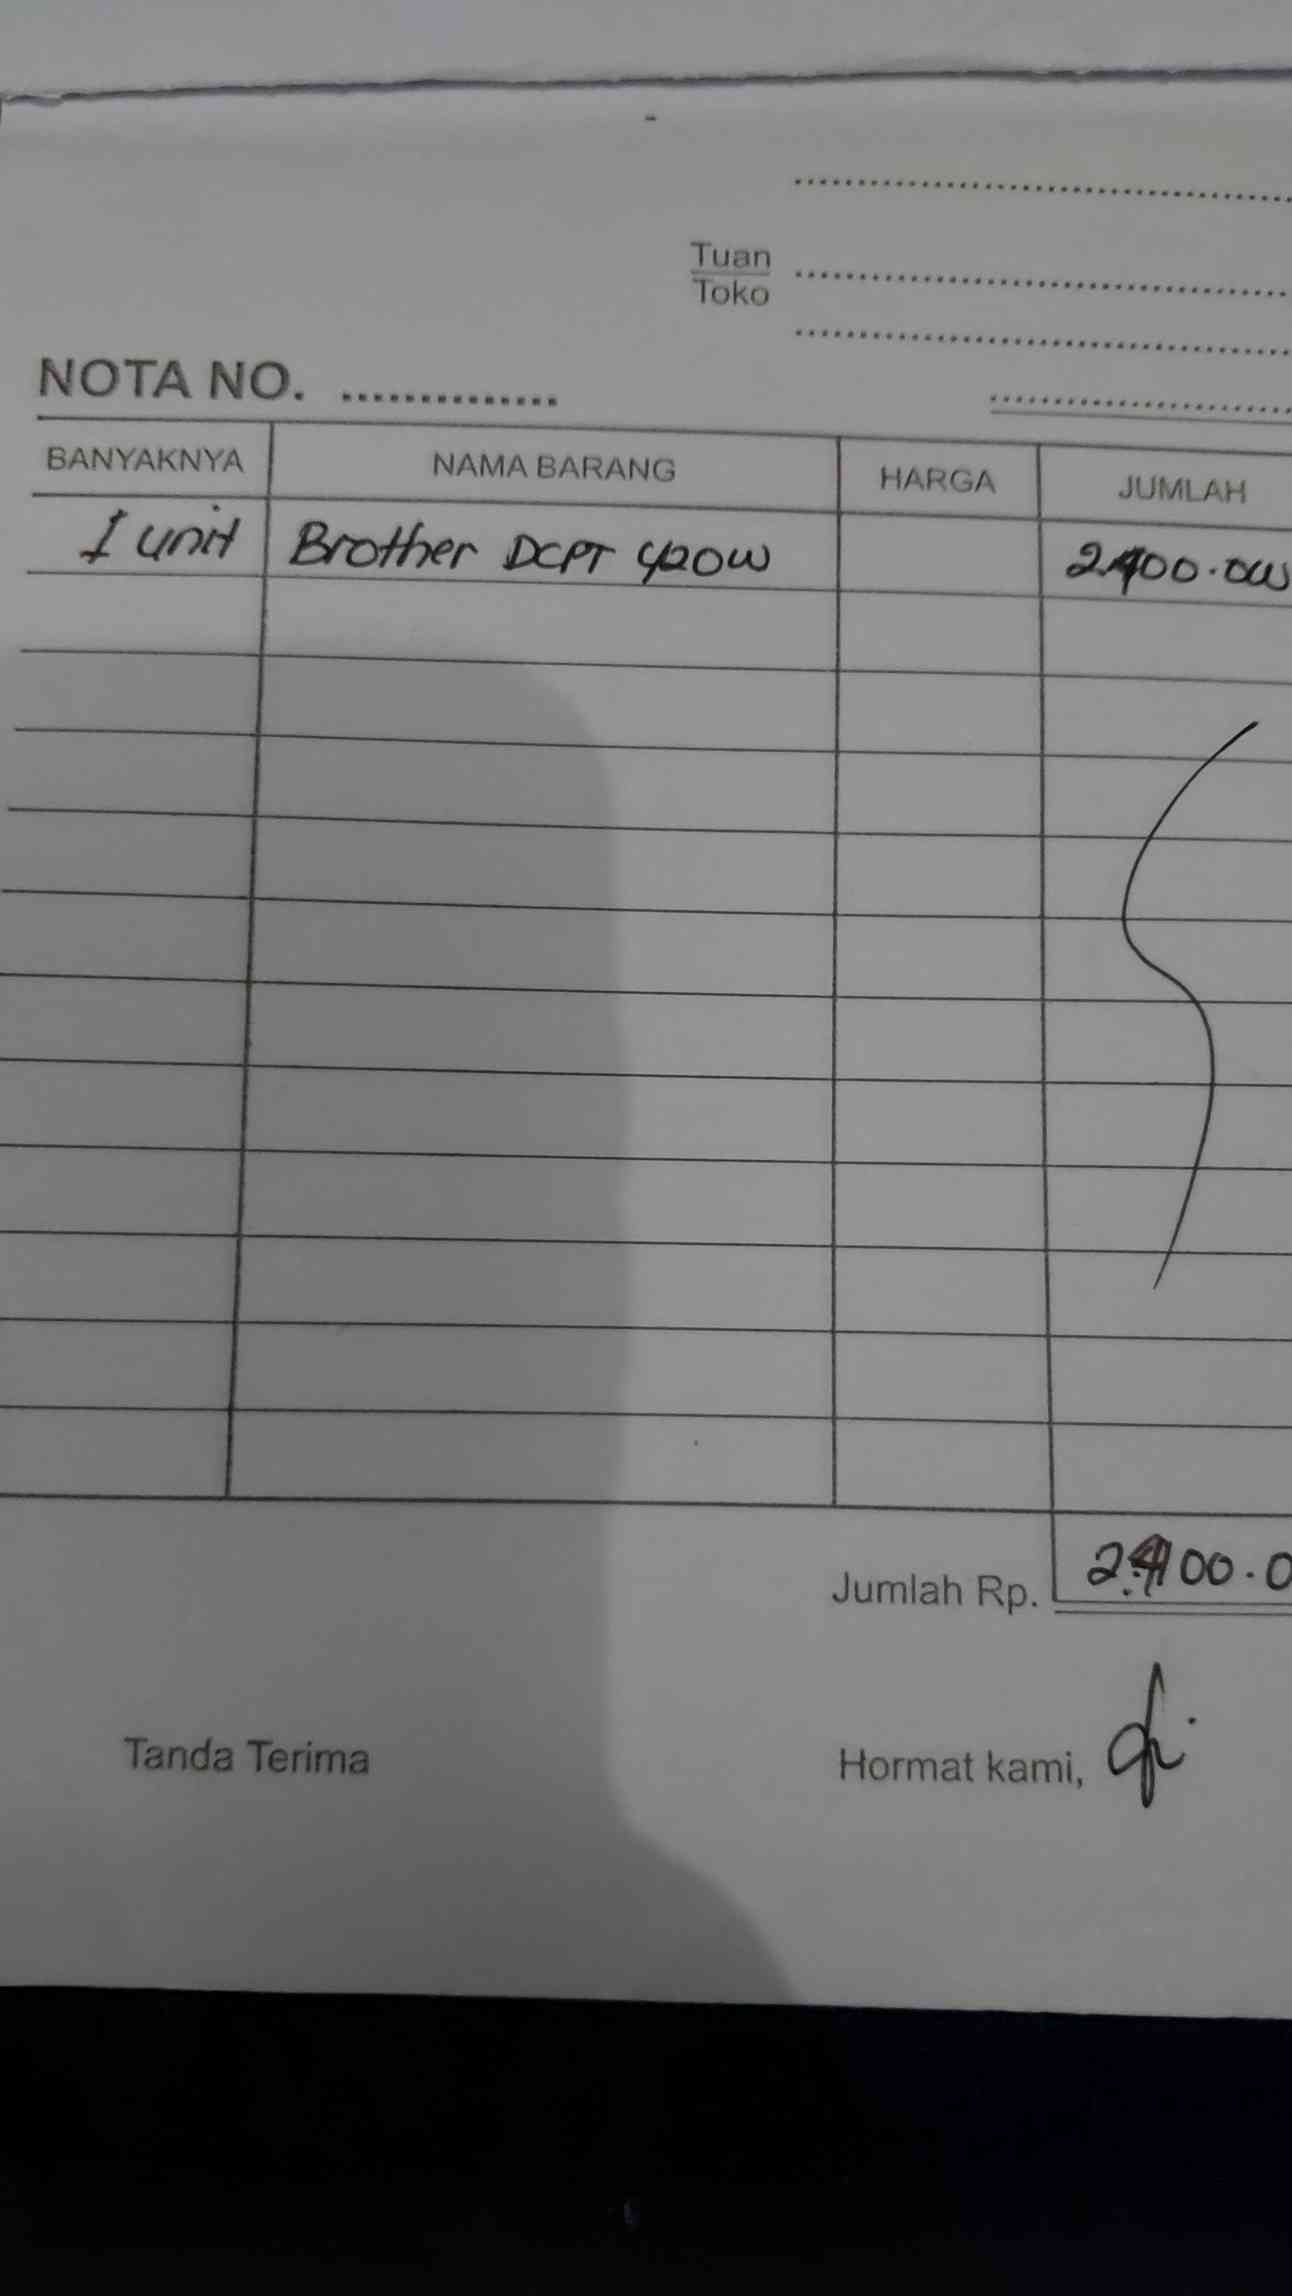 Tuan
Toko
NOTA NO. ..............
BANYAKNYA NAMA BARANG HARGA JUMLAH
1 unit Brother DCPT 420W
Jumlah Rp.
Tanda Terima Hormat kami,